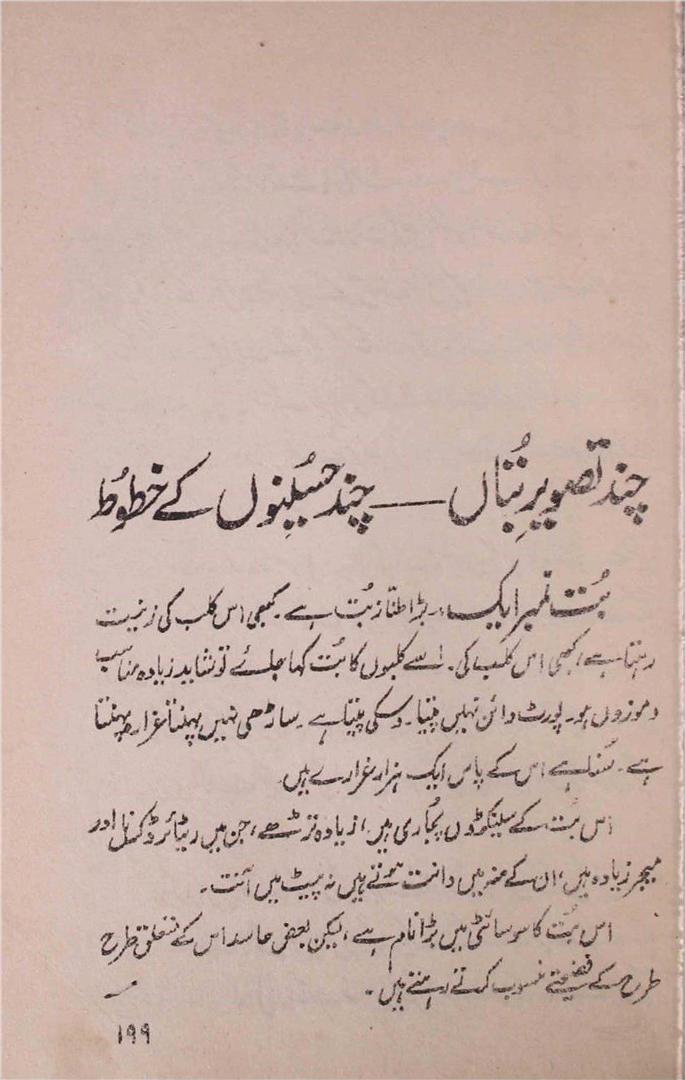 چند تصویرِ بُتاں — چند حسینوں کے خطوط
بُت نمبر ایک، بڑا طنّاز بُت ہے۔ کبھی اس کلب کی زینت
رہتا ہے، کبھی اس کلب کی۔ اسے کلبوں کا بُت کہا جائے تو شاید زیادہ مناسب
و موزوں ہو۔ پورٹ وائن نہیں پیتا۔ وسکی پیتا ہے۔ ساڑھی نہیں پہنتا غرارہ پہنتا
ہے۔ سُنا ہے اس کے پاس ایک ہزار غرارے ہیں
اس بُت کے سینکڑوں پجاری ہیں، زیادہ تر بڈھے، جن میں ریٹائرڈ کرنل اور
میجر زیادہ ہیں، ان کے منہ میں دانت ہوتے ہیں نہ پیٹ میں آنت۔
اس بُت کا سوسائٹی میں بڑا نام ہے، لیکن بعض حاسد اس کے متعلق طرح
طرح کے فضیحتے منسوب کرتے رہتے ہیں۔
۱۹۹